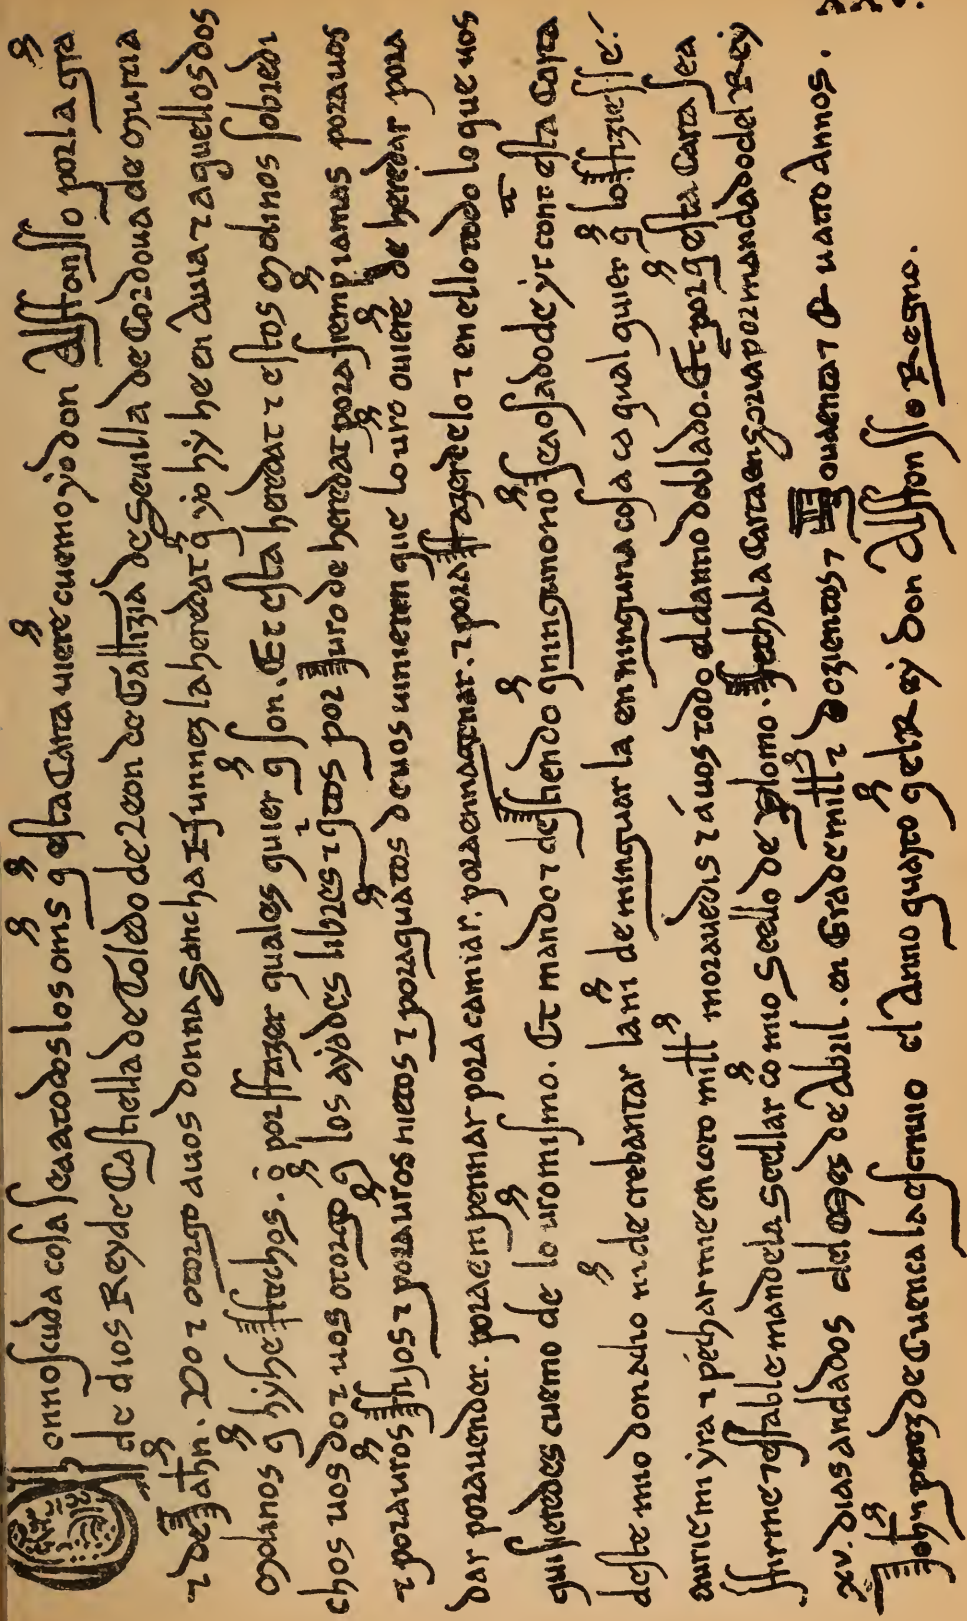 Connosçuda cosa sea a todos los oms q̃ esta Carta uiere cuemo yo don Alffonsso por la gr̃a
de dios Rey de Castiella de Toledo de Leon de Gallizia de Seuilla de Cordoua de Murcia
τ de Jahn. Do τ otorgo a uos donna Sancha la heredat q̃ yo hy he en Aluar τ aquellos dos
Molinos q̃ hy he ffechos. o por ffazer quales quier q̃ son. Et esta heredat τ estos Molinos sobredi
chos uos do τ uos otorgo q̃ los ayades libres τ quitos por Juro de heredat pora siempre iamas pora uos
τ pora uros ffijos τ pora uros nietos τ pora quantos de uos uinieren que lo uro ouieren de heredar pora
dar pora uender. pora empennar pora camiar. pora ennaienar. τ pora ffazer dello τ en ello todo lo que uos
quisieredes cuemo de lo uro mismo. Et mando τ deffiendo q̃ ninguno no sea osado de yr contr esta Carta
deste mio donadio ni de crebantar la ni de minguar la en ninguna cosa ca qual quier q̃ lo ffiziesse.
aurie mi yra τ pechar mie en coto mill morauedis τ a uos todo el danno doblado. Et por q̃ esta Carta sea
ffirme τ estable mandela seellar co mio seello de plomo. ffecha la Carta en por mandado del Rey
xv. dias andados del mes de Abril. en Era de mill τ dozientos τ Nouaenta τ Quatro annos.
Johan perez de Cuenca la escriuio el anno quarto q̃ el Rey don Alffonsso Regno.